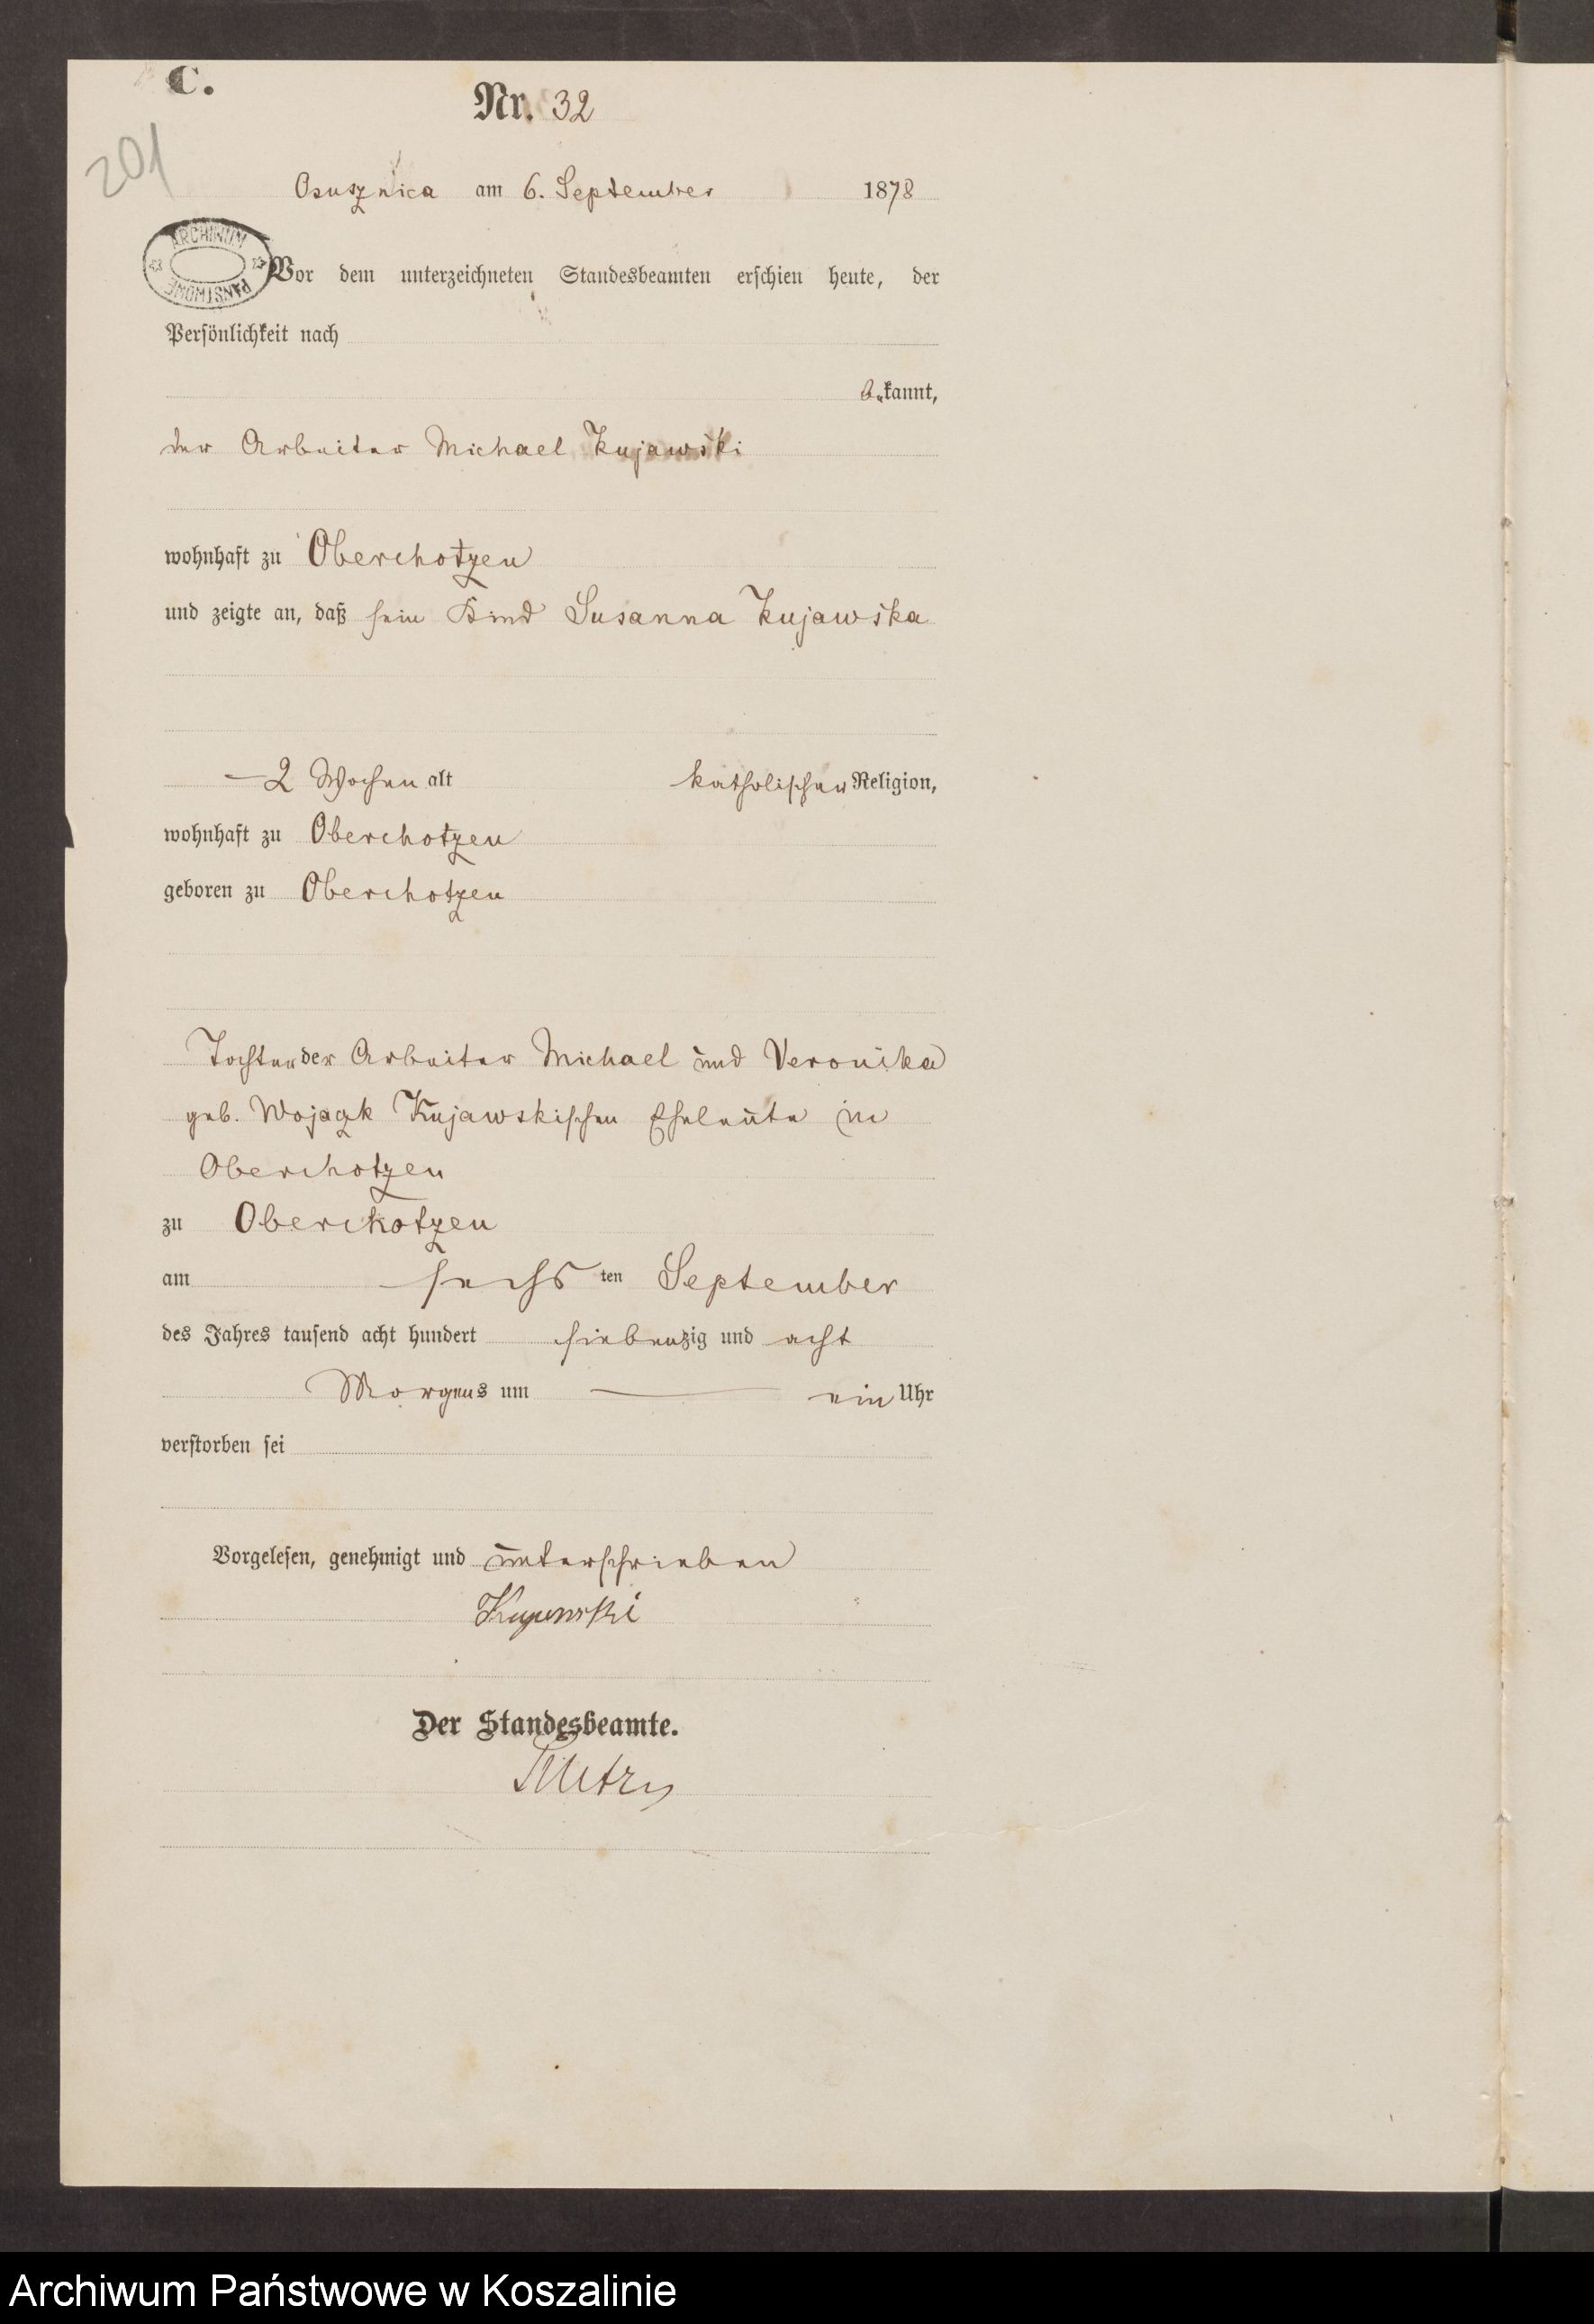 C.
Nr. 32
201
Osusznica am 6. September 1878
ARCHIWUM
PAŃSTWOWE
Vor dem unterzeichneten Standesbeamten erschien heute, der
Persönlichkeit nach
bekannt,
der Arbeiter Michael Kujawski
wohnhaft zu Oberchotzen
und zeigte an, daß sein Kind Susanna Kujawska
2 Wochen alt katholischer Religion,
wohnhaft zu Oberchotzen
geboren zu Oberchotzen
Tochter der Arbeiter Michael und Veronika
geb. Wojack Kujawskischen Eheleute in
Oberchotzen
zu Oberchotzen
am sechsten September
des Jahres tausend acht hundert siebenzig und acht
Morgens um ein Uhr
verstorben sei
Vorgelesen, genehmigt und unterschrieben
Kujawski
Der Standesbeamte.
Archiwum Państwowe w Koszalinie